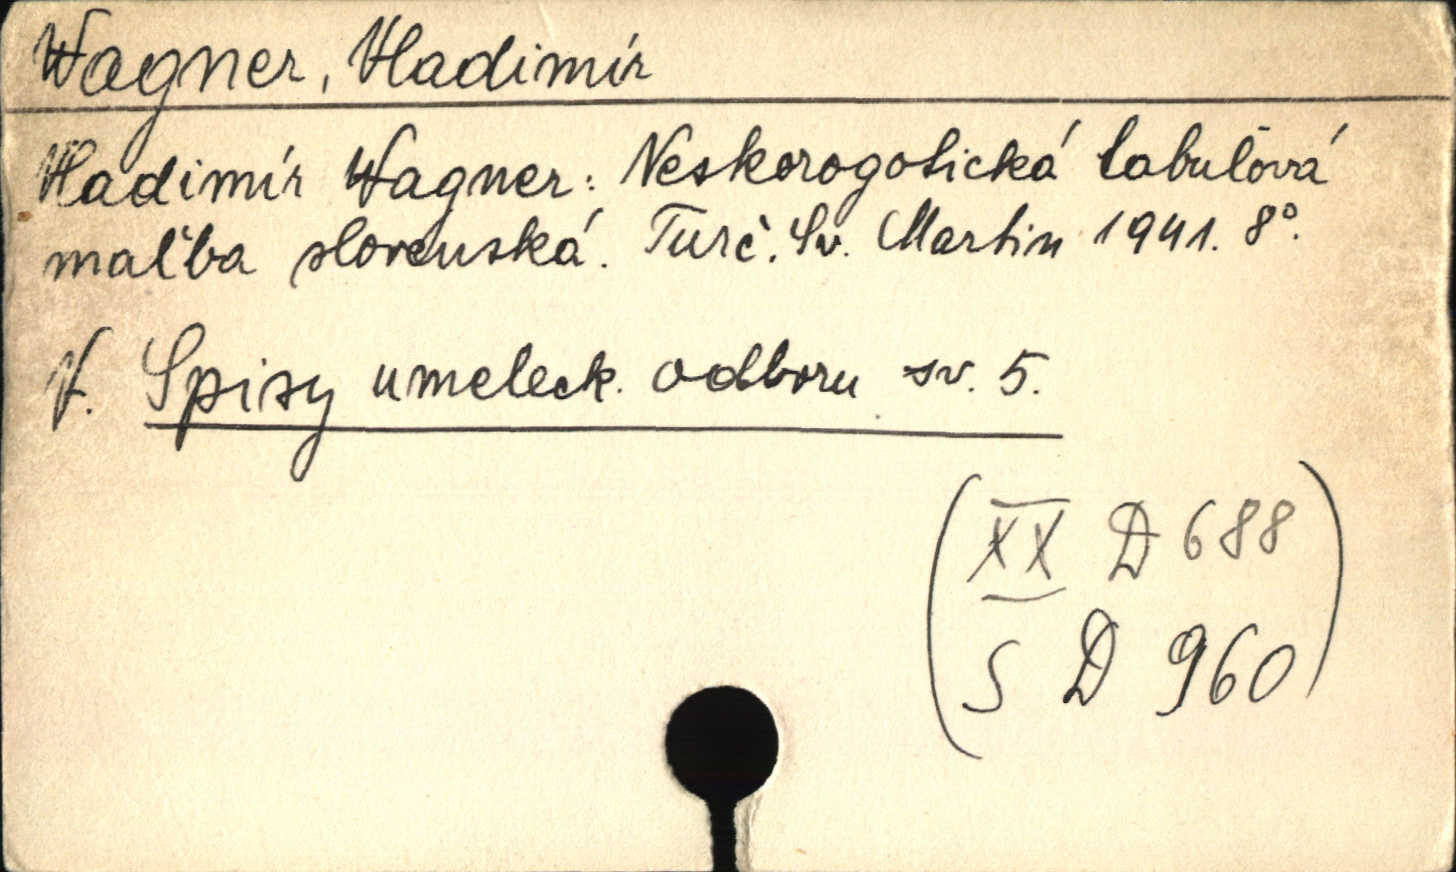 Wagner, Vladimír
Vladimír Wagner: Neskorogotická tabuľová
maľba slovenská. Turč. Sv. Martin 1941. 8°.
V. Spisy umeleck. odboru sv. 5.
XX D 688
S D 960